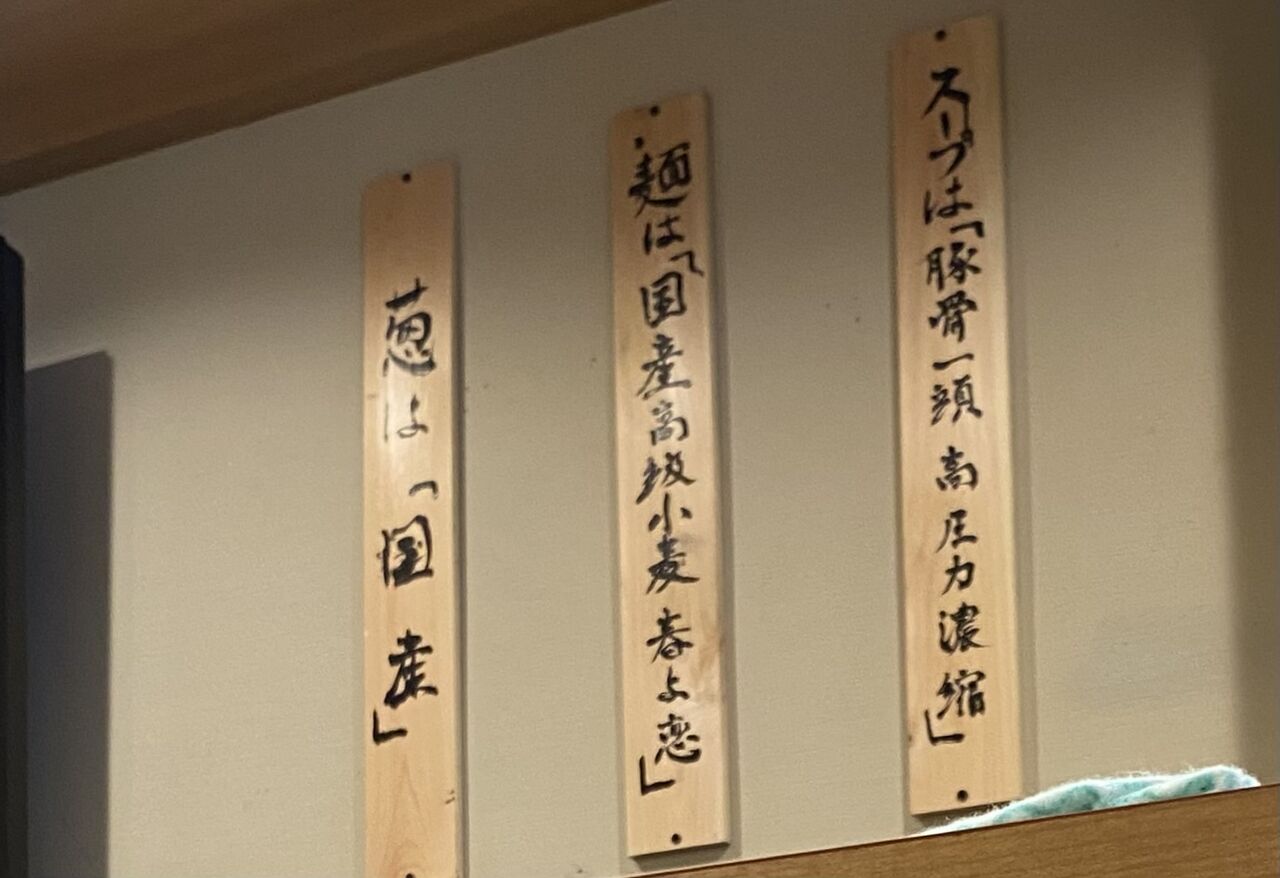 スープは「豚骨一頭 高圧力濃縮」
麺は「国産高級小麦 春よ恋」
葱は「国産」